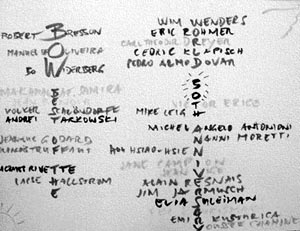 ROBERT BRESSON
MANUEL OLIVEIRA
BO WIDERBERG
VOLKER SCHLÖNDORFF
ANDREI TARKOVSKI
GODARD
RIVETTE
LASSE HALLSTROM
WIM WENDERS
ERIC ROHMER
CARL THEODOR DREYER
CEDRIC KLAPISCH
PEDRO ALMODOVAR
VICTOR ERICE
MIKE LEIGH
MICHELANGELO ANTONIONI
NANNI MORETTI
HOU HSIAO-HSIEN
JANE CAMPION
JEAN
ALAIN RESNAIS
JIM JARMUSCH
ELIA SULEIMAN
EMIR KUSTURICA
YOUSSEF CHAHINE